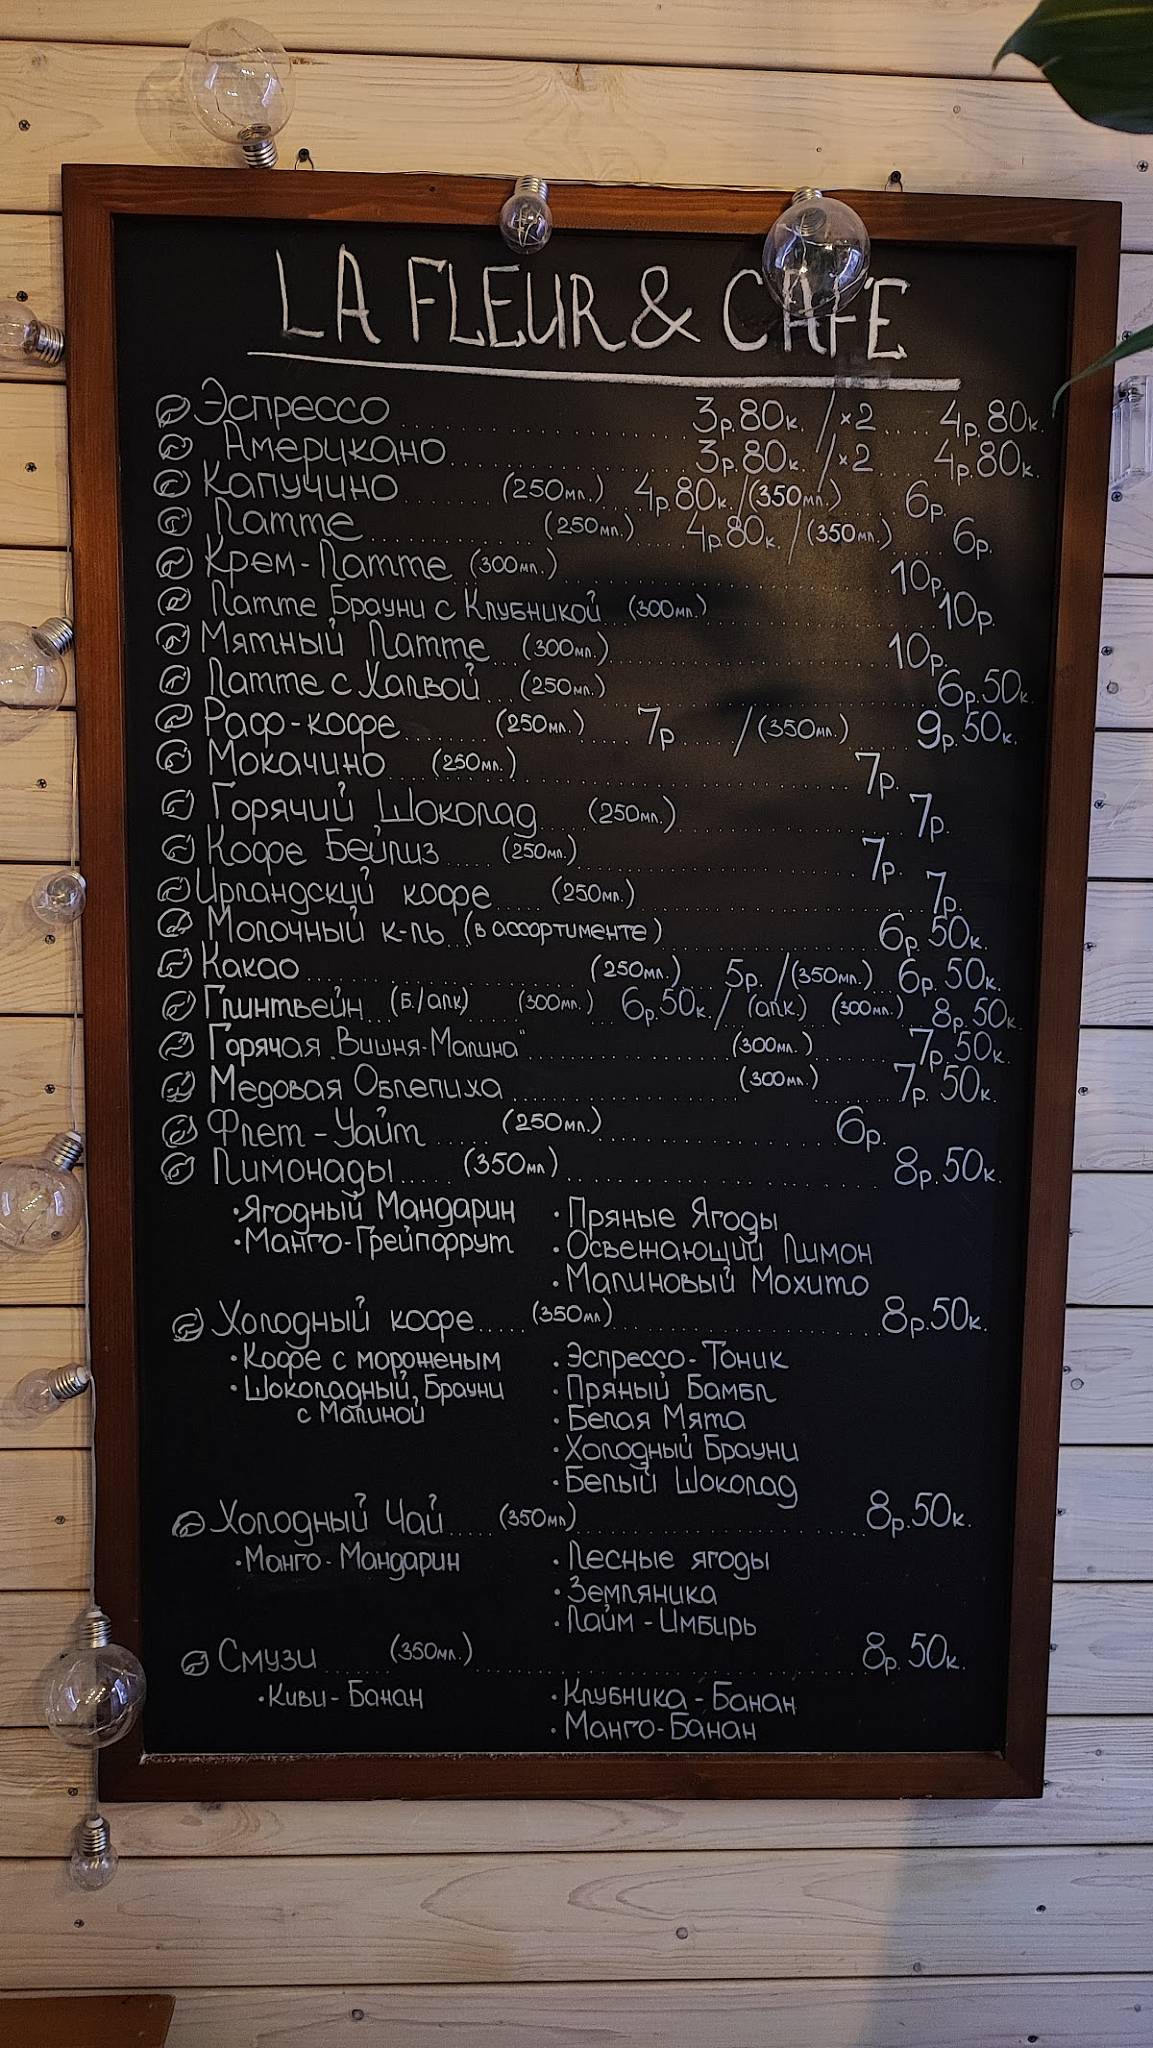 LA FLEUR & CAFE
Эспрессо 3р.80к. / ×2 4р.80к.
Американо 3р.80к. / ×2 4р.80к.
Капучино (250мл.) 4р.80к. / (350мл.) 6р.
Латте (250мл.) 4р.80к. / (350мл.) 6р.
Крем-Латте (300мл.) 10р.
Латте Брауни с Клубникой (300мл.) 10р.
Мятный Латте (300мл.) 10р.
Латте с Халвой (250мл.) 6р.50к.
Раф-кофе (250мл.) 7р / (350мл.) 9р.50к.
Мокачино (250мл.) 7р.
Горячий Шоколад (250мл.) 7р.
Кофе Бейлиз (250мл.) 7р.
Ирландский кофе (250мл.) 7р.
Молочный к-ль (в ассортименте) 6р.50к.
Какао (250мл.) 5р. / (350мл.) 6р.50к.
Глинтвейн (б./алк) (300мл.) 6р.50к. / (алк.) (300мл.) 8р.50к.
Горячая „Вишня-Малина" (300мл.) 7р.50к.
Медовая Облепиха (300мл.) 7р.50к.
Флет-Уайт (250мл.) 6р.
Лимонады (350мл) 8р.50к.
•Ягодный Мандарин •Пряные Ягоды
•Манго-Грейпфрут •Освежающий Лимон
•Малиновый Мохито
Холодный кофе (350мл) 8р.50к.
•Кофе с мороженым •Эспрессо-Тоник
•Шоколадный Брауни •Пряный Бамбл
с Малиной •Белая Мята
•Холодный Брауни
•Белый Шоколад
Холодный Чай (350мл) 8р.50к.
•Манго-Мандарин •Лесные ягоды
•Земляника
•Лайм-Имбирь
Смузи (350мл.) 8р.50к.
•Киви-Банан •Клубника-Банан
•Манго-Банан